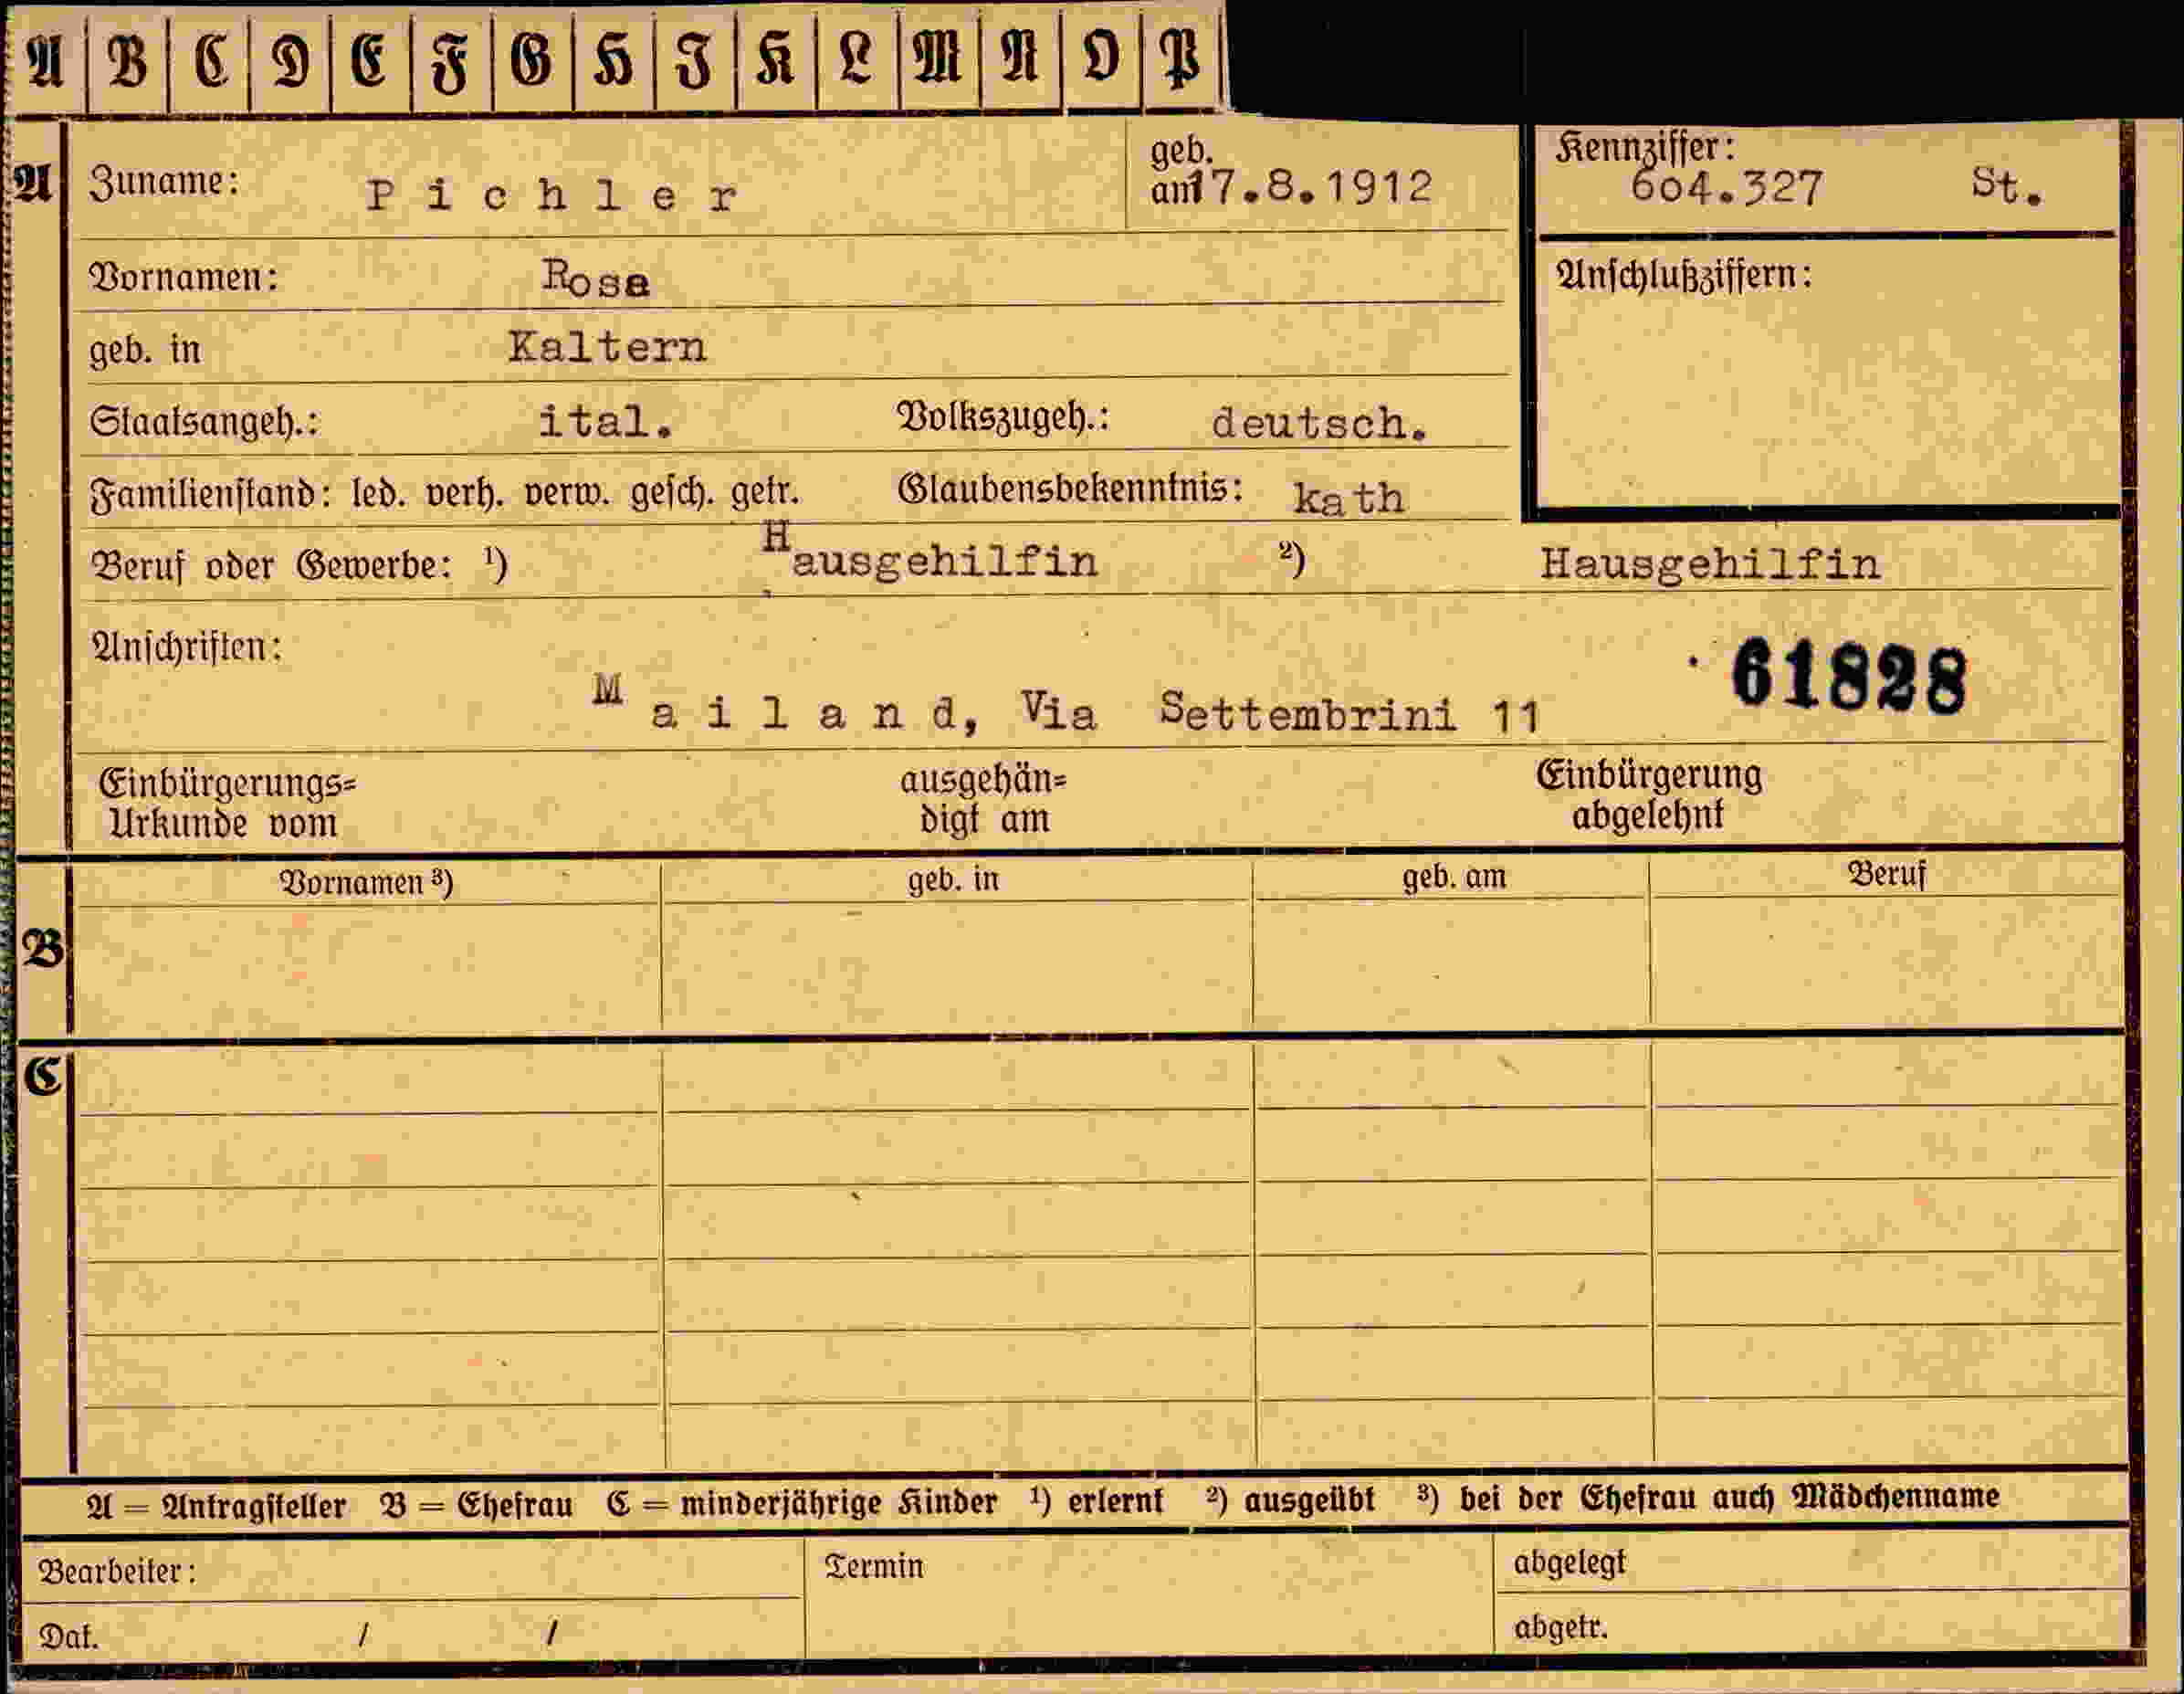 A B C D E F G H I K L M N O P
A Zuname: Pichler geb. am 17.8.1912 Kennziffer: 604.327 St.
Vornamen: Rosa Anschlußziffern:
geb. in Kaltern
Staatsangeh.: ital. Volkszugeh.: deutsch.
Familienstand: led. verh. verw. gesch. getr. Glaubensbekenntnis: kath
Beruf oder Gewerbe: ¹) Hausgehilfin ²) Hausgehilfin
Anschriften:
61828
Mailand, Via Settembrini 11
Einbürgerungs= ausgehän= Einbürgerung
Urkunde vom digt am abgelehnt
Vornamen ³) geb. in geb. am Beruf
B
C
A = Antragsteller B = Ehefrau C = minderjährige Kinder ¹) erlernt ²) ausgeübt ³) bei der Ehefrau auch Mädchenname
Bearbeiter: Termin abgelegt
Dat. / / abgetr.